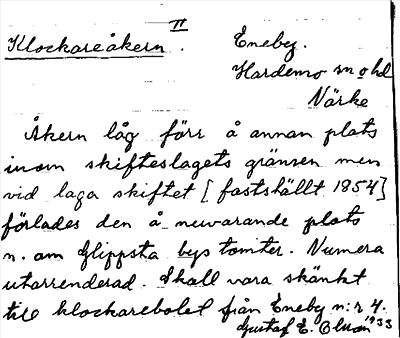 II
Klockareåkern. Eneby.
Hardemo sn o hd
Närke
Åkern låg förr å annan plats
inom skifteslagets gränser men
vid laga skiftet [fastställt 1854]
förlades den å nuvarande plats
n. om Glippsta bys tomter. Numera
utarrenderad. Skall vara skänkt
till klockarebolet från Eneby n:r 4.
Gustaf E. Olsson 1933